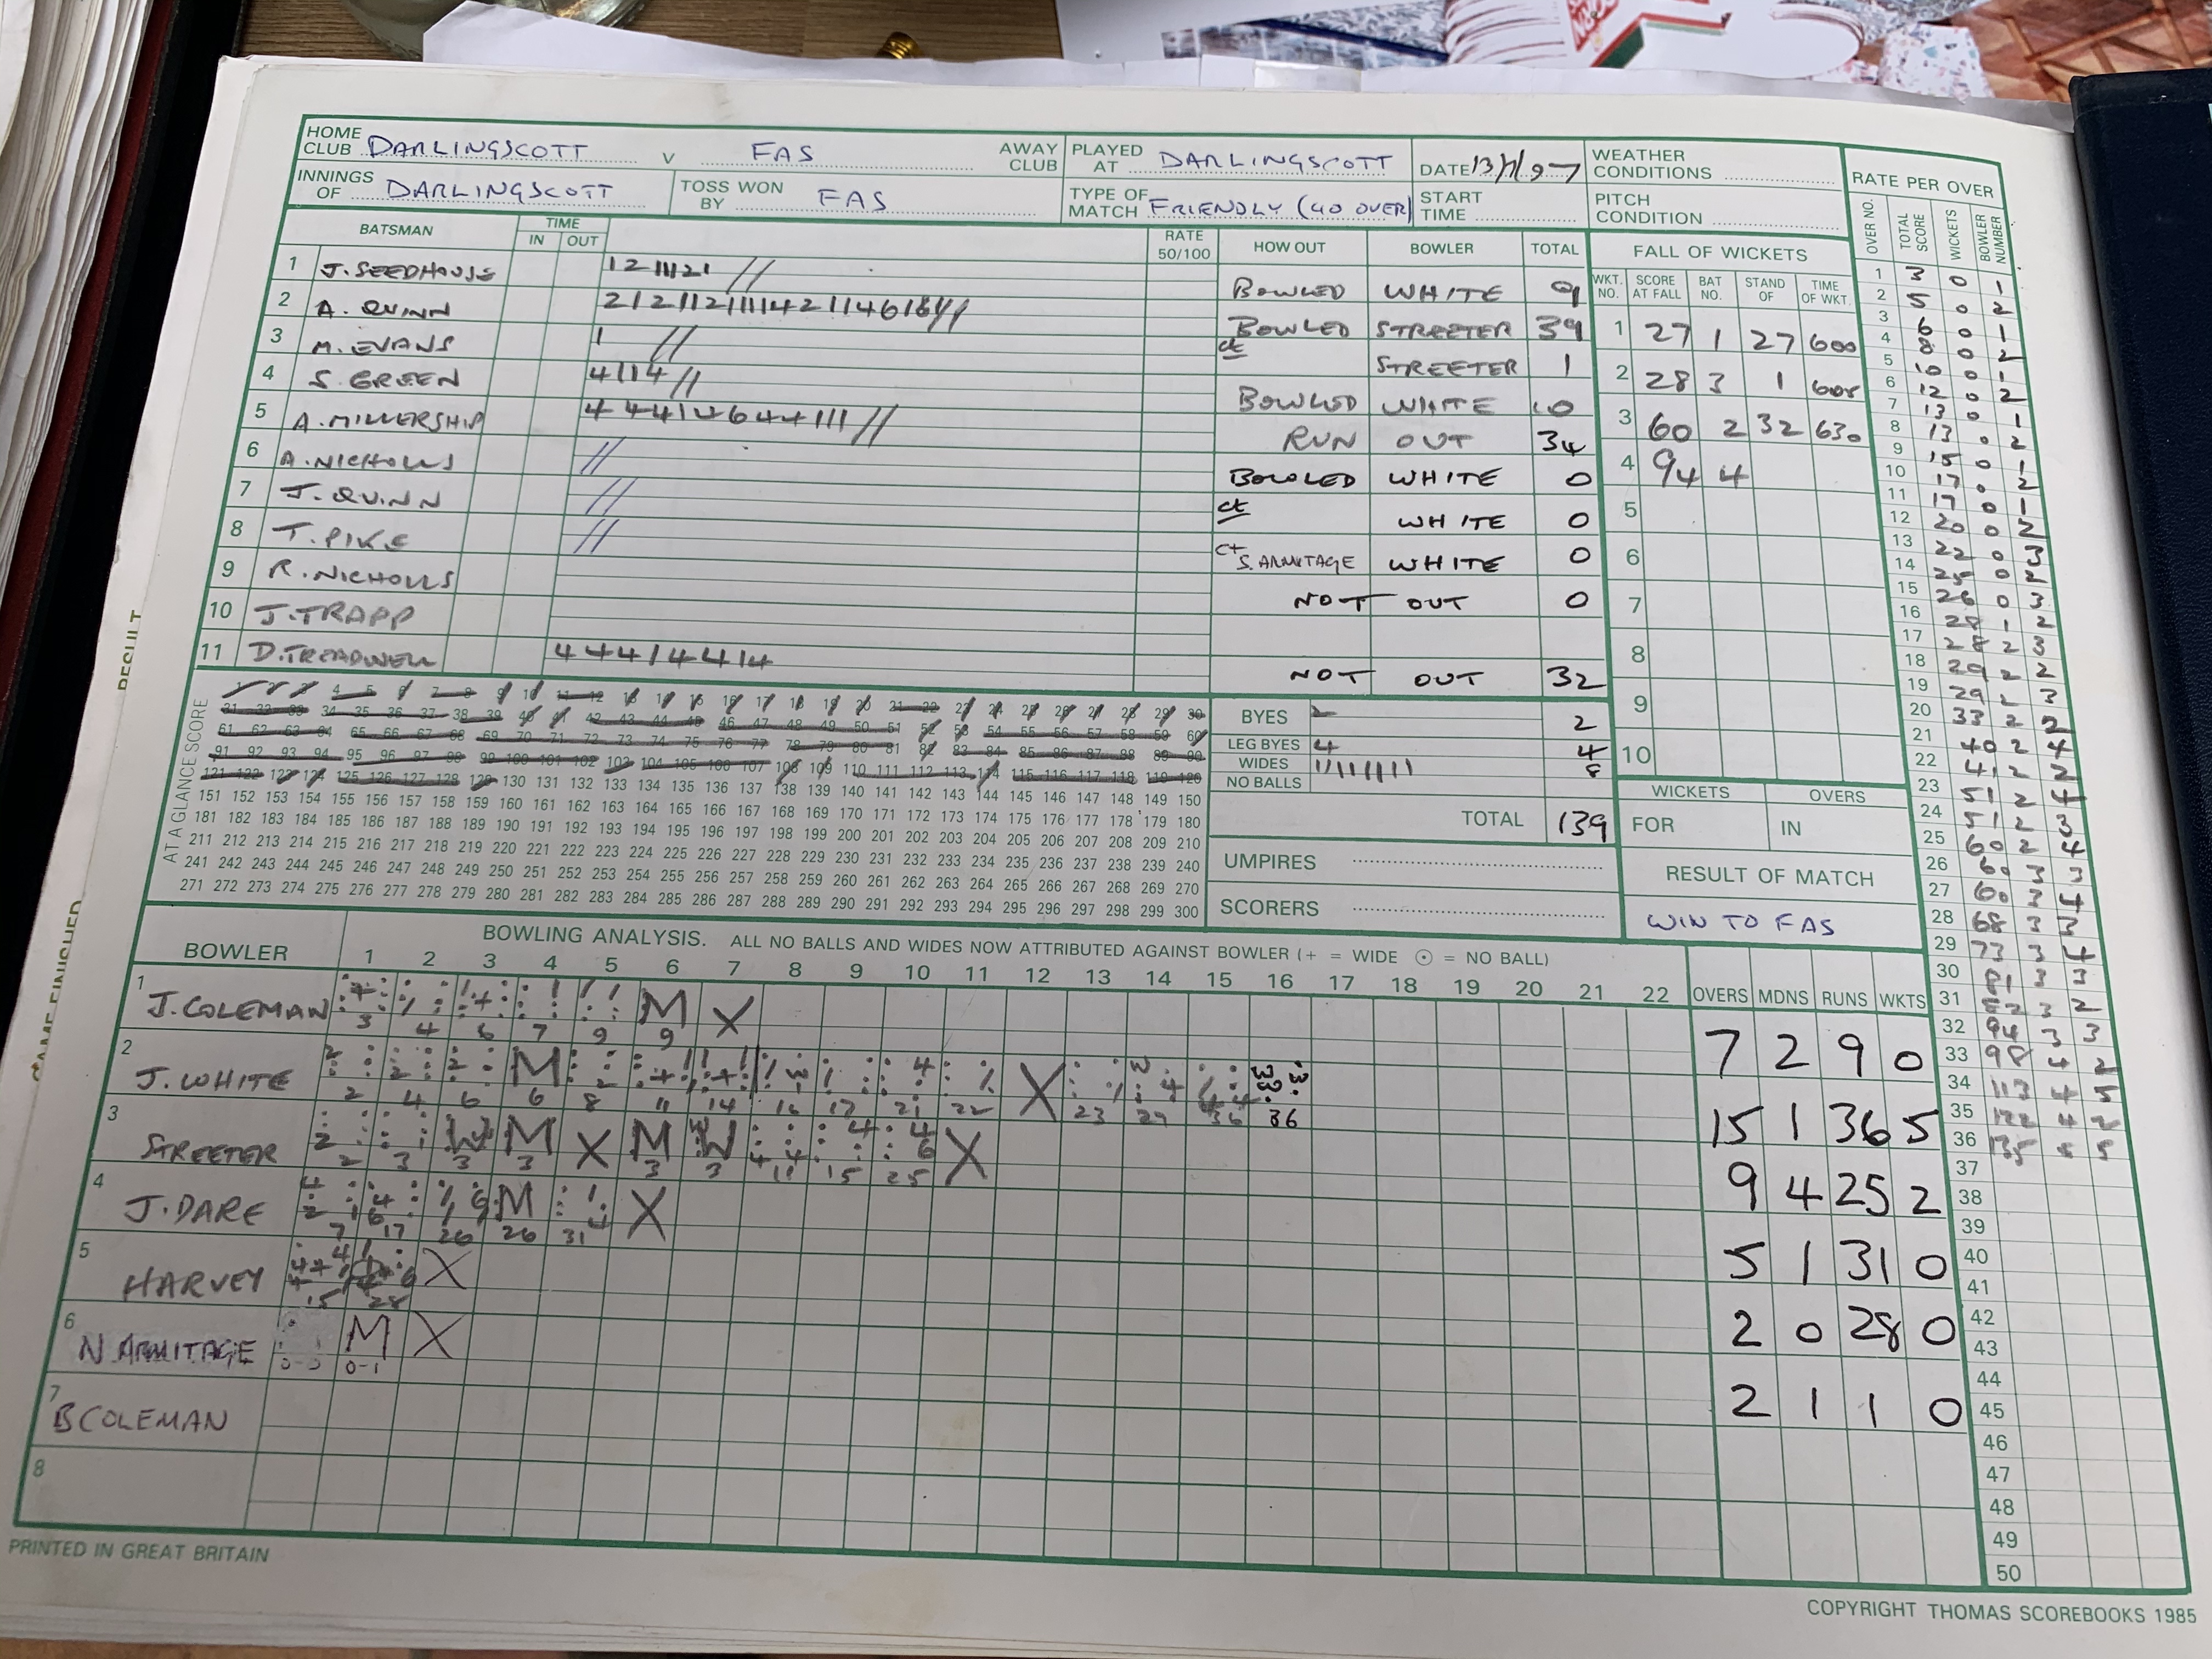 HOME CLUB DARLINGSCOTT V FAS AWAY CLUB PLAYED AT DARLINGSCOTT DATE 13/7/97 WEATHER CONDITIONS
INNINGS OF DARLINGSCOTT TOSS WON BY FAS TYPE OF MATCH FRIENDLY (40 OVER) START TIME PITCH CONDITION
BATSMAN TIME IN OUT RATE 50/100 HOW OUT BOWLER TOTAL
1 J. SEEDHOUSE 1211121 // BOWLED WHITE 9
2 A. QUINN BOWLED STREETER 39
3 M. EVANS 1 // ct STREETER 1
4 S. GREEN 4114 // BOWLED WHITE 10
5 A. MILLERSHIP // RUN OUT 34
6 A. NICHOLLS // BOWLED WHITE 0
7 J. QUINN // ct WHITE 0
8 T. PIKE // ct S. ARMITAGE WHITE 0
9 R. NICHOLLS NOT OUT 0
10 J. TRAPP
11 D. TREADWELL 44414414 NOT OUT 32
FALL OF WICKETS
WKT. NO. SCORE AT FALL BAT NO. STAND OF TIME OF WKT.
1 27 1 27 600
2 28 3 1 608
3 60 2 32 630
4 94 4
5
6
7
8
9
10
AT A GLANCE SCORE
31 32 33 34 35 36 37 38 39 40 41 42 43 44 45 46 47 48 49 50 51 52 53 54 55 56 57 58 59 60
61 62 63 64 65 66 67 68 69 70 71 72 73 74 75 76 77 78 79 80 81 82 83 84 85 86 87 88 89 90
91 92 93 94 95 96 97 98 99 100 101 102 103 104 105 106 107 108 109 110 111 112 113 114 115 116 117 118 119 120
121 122 123 124 125 126 127 128 129 130 131 132 133 134 135 136 137 138 139 140 141 142 143 144 145 146 147 148 149 150
151 152 153 154 155 156 157 158 159 160 161 162 163 164 165 166 167 168 169 170 171 172 173 174 175 176 177 178 179 180
181 182 183 184 185 186 187 188 189 190 191 192 193 194 195 196 197 198 199 200 201 202 203 204 205 206 207 208 209 210
211 212 213 214 215 216 217 218 219 220 221 222 223 224 225 226 227 228 229 230 231 232 233 234 235 236 237 238 239 240
241 242 243 244 245 246 247 248 249 250 251 252 253 254 255 256 257 258 259 260 261 262 263 264 265 266 267 268 269 270
271 272 273 274 275 276 277 278 279 280 281 282 283 284 285 286 287 288 289 290 291 292 293 294 295 296 297 298 299 300
BYES 2 2
LEG BYES 4 4
WIDES 11111111 8
NO BALLS
TOTAL 139
UMPIRES
SCORERS
WICKETS OVERS
FOR IN
RESULT OF MATCH
WIN TO FAS
BOWLER BOWLING ANALYSIS. ALL NO BALLS AND WIDES NOW ATTRIBUTED AGAINST BOWLER (+ = WIDE ⊙ = NO BALL)
1 2 3 4 5 6 7 8 9 10 11 12 13 14 15 16 17 18 19 20 21 22 OVERS MDNS RUNS WKTS
1 J. COLEMAN 3 4 6 7 9 M 9 X 7 2 9 0
2 J. WHITE 2 4 6 M 6 8 11 14 16 17 21 22 X 23 29 36 36 15 1 36 5
3 STREETER 2 3 W 3 M 3 X M 3 W 3 11 15 25 X 9 4 25 2
4 J. DARE 7 17 26 M 26 31 X 5 1 31 0
5 HARVEY 15 28 X 2 0 28 0
6 N. ARMITAGE M 0-1 X 2 1 1 0
7 B COLEMAN
8
RATE PER OVER
OVER NO. TOTAL SCORE WICKETS BOWLER NUMBER
1 3 0 1
2 5 0 2
3 6 0 1
4 8 0 2
5 10 0 1
6 12 0 2
7 13 0 1
8 13 0 2
9 15 0 1
10 17 0 2
11 17 0 1
12 20 0 2
13 22 0 3
14 25 0 2
15 26 0 3
16 28 1 2
17 28 2 3
18 29 2 2
19 29 2 3
20 33 2 2
21 40 2 4
22 41 2 2
23 51 2 4
24 51 2 3
25 60 2 4
26 60 3 3
27 60 3 4
28 68 3 3
29 73 3 4
30 81 3 3
31 82 3 2
32 94 3 3
33 98 4 2
34 113 4 5
35 122 4 2
36 135 5
37
38
39
40
41
42
43
44
45
46
47
48
49
50
PRINTED IN GREAT BRITAIN
COPYRIGHT THOMAS SCOREBOOKS 1985
RESULT
GAME FINISHED